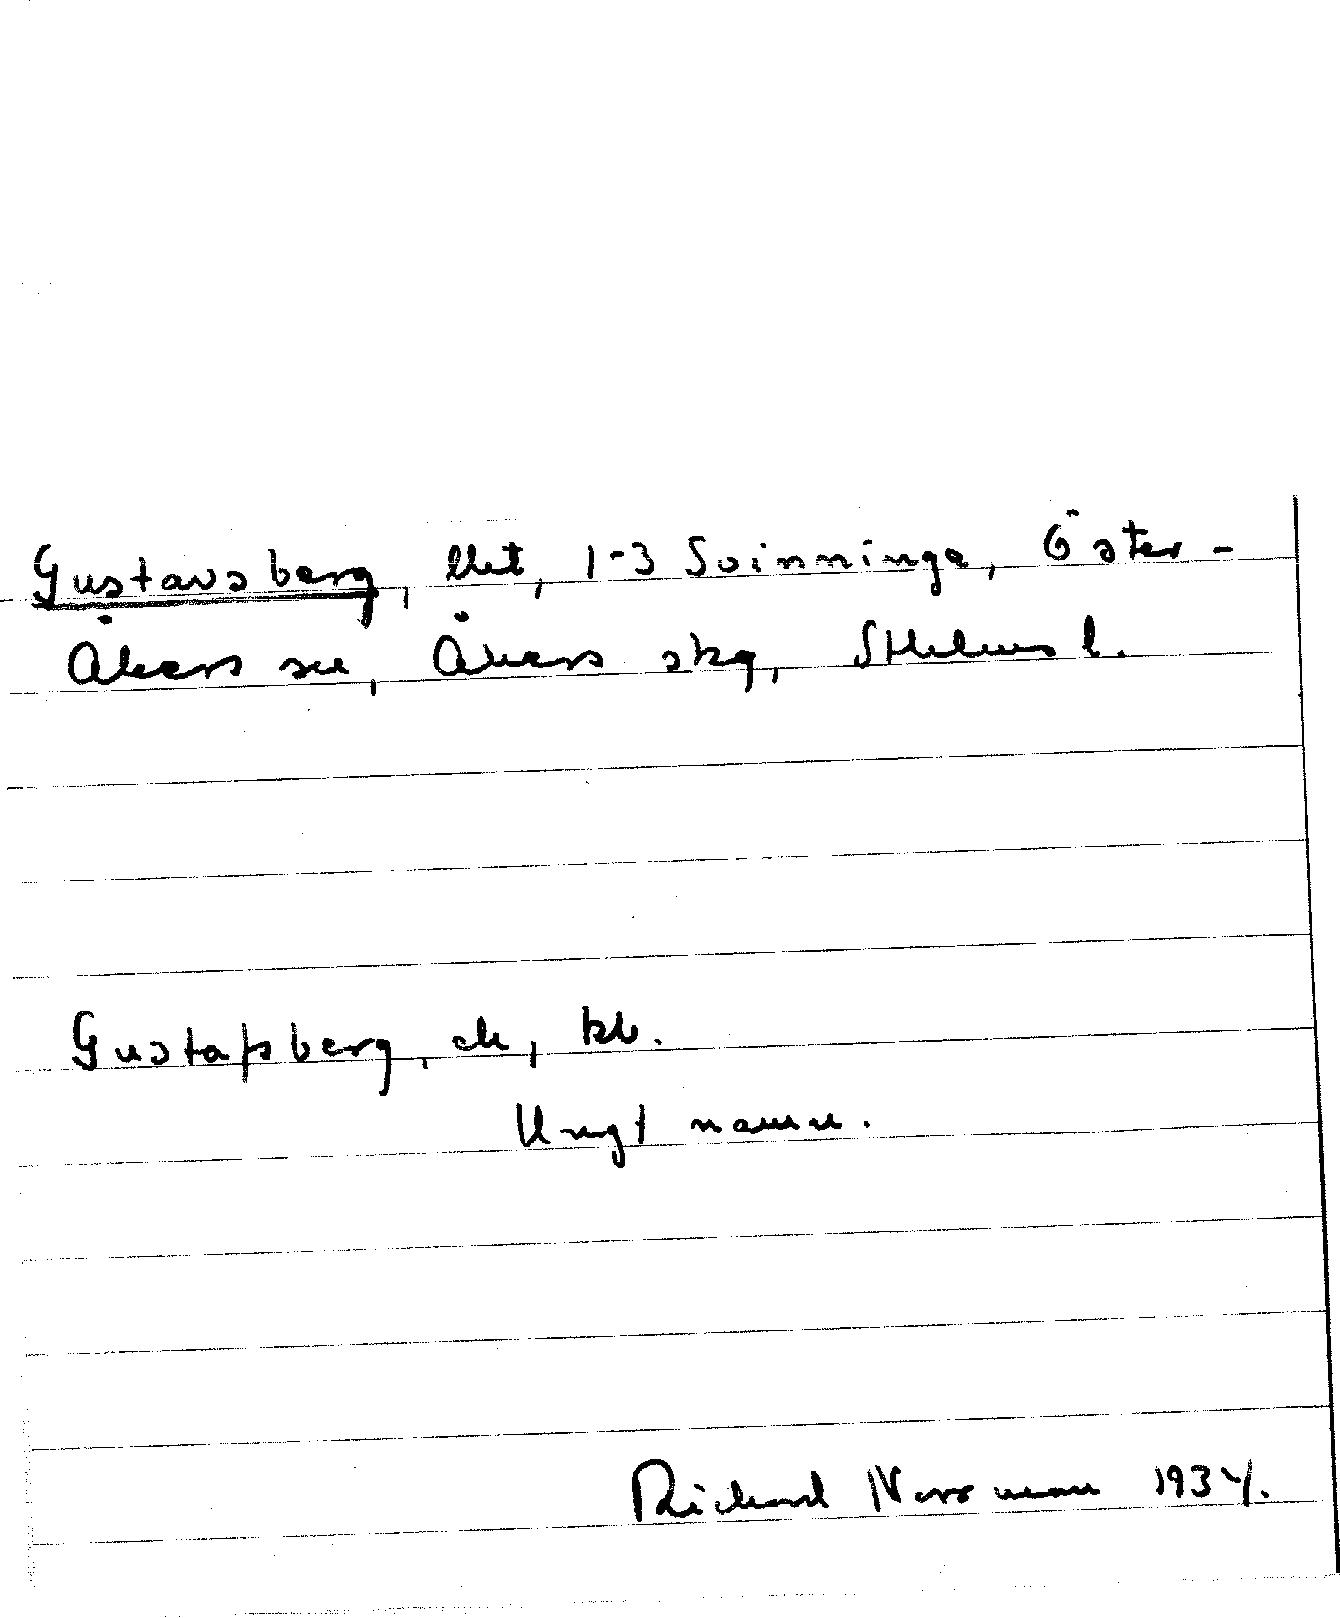 Gustavsberg, lht, 1-3 Svinninge, Öster-
Åkers sn, Åkers skg, Sthlms l.
Gustafsberg, ek, kb.
Ungt namn.
Richard Norrman 1934.